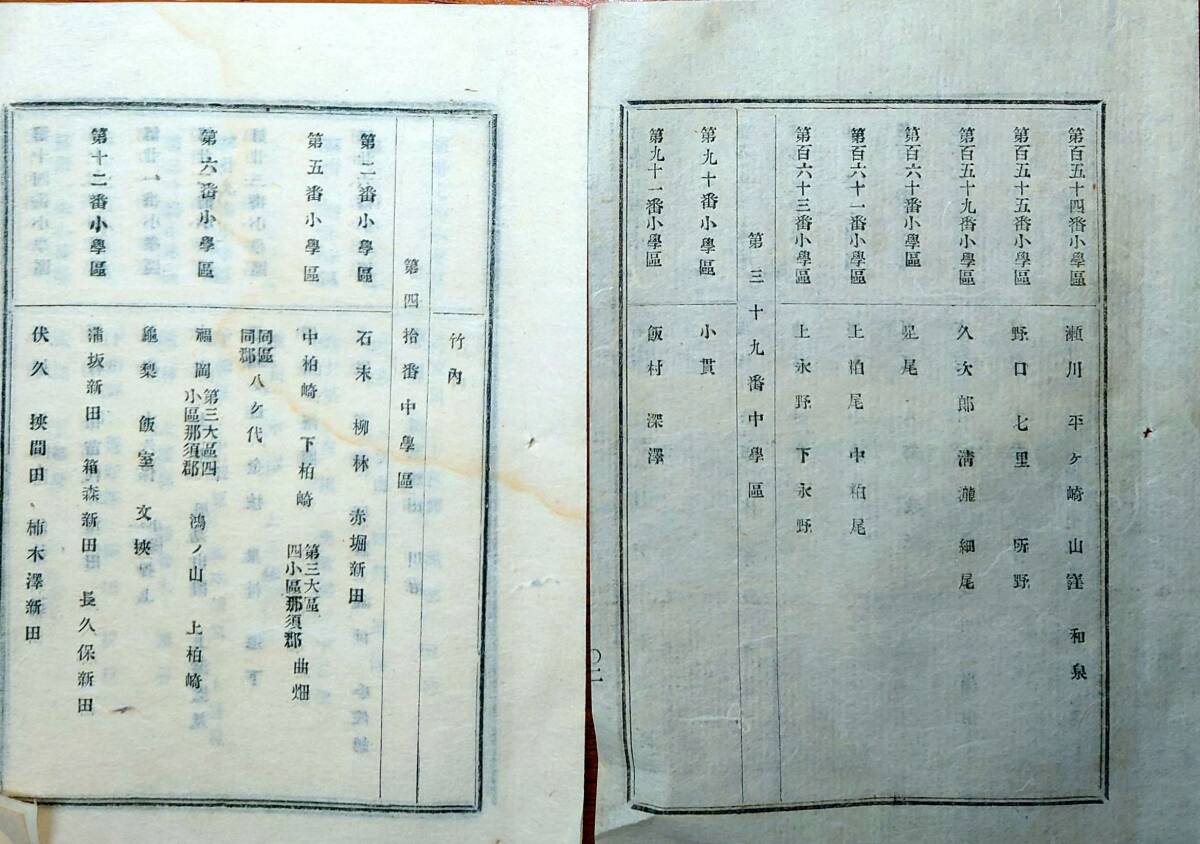 第百五十四番小學區 瀬川 平ヶ崎 山窪 和泉
第百五十五番小學區 野口 七里 所野
第百五十九番小學區 久次郎 清瀧 細尾
第百六十番小學區 尾
第百六十一番小學區 上粕尾 中粕尾
第百六十三番小學區 上永野 下永野
第三十九番中學區
第九十番小學區 小貫
第九十一番小學區 飯村 深澤
竹內
第四拾番中學區
第二番小學區 石末 柳林 赤堀新田
第五番小學區 中柏崎 下柏崎 第三大區四小區那須郡 曲畑
同區同郡 八ケ代
第六番小學區 福岡 第三大區四小區那須郡 鴻ノ山 上柏崎
龜梨 飯室 文挾
蒲坂新田 箱森新田 長久保新田
第十二番小學區 伏久 挾間田 柿木澤新田